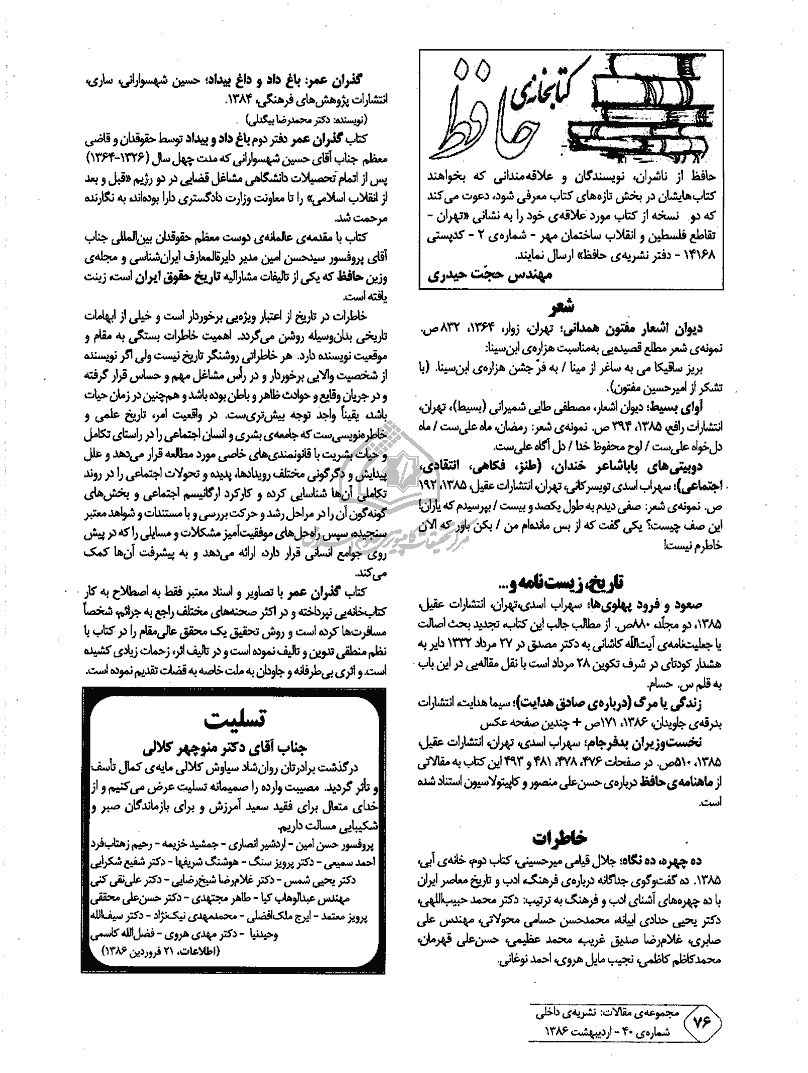 کتابخانه‌ی
حافظ
حافظ از ناشران، نویسندگان و علاقه‌مندانی که بخواهند
کتاب‌هایشان در بخش تازه‌های کتاب معرفی شود، دعوت می‌کند
که دو نسخه از کتاب مورد علاقه‌ی خود را به نشانی «تهران -
تقاطع فلسطین و انقلاب ساختمان مهر - شماره‌ی ۲ - کدپستی
۱۴۱۶۸ - دفتر نشریه‌ی حافظ» ارسال نمایند.
مهندس حجّت حیدری
شعر
دیوان اشعار مفتون همدانی؛ تهران، زوار، ۱۳۶۴، ۸۳۲ ص.
نمونه‌ی شعر مطلع قصیده‌یی به‌مناسبت هزاره‌ی ابن‌سینا:
بریز ساقیکا می به ساغر از مینا / به فرّ جشن هزاره‌ی ابن‌سینا. (با
تشکر از امیرحسین مفتون).
آوای بسیط؛ دیوان اشعار، مصطفی طایی شمیرانی (بسیط)، تهران،
انتشارات رافع، ۱۳۸۵، ۳۹۴ ص. نمونه‌ی شعر: رمضان، ماه علی‌ست / ماه
دل‌خواه علی‌ست / لوح محفوظ خدا / دل آگاه علی‌ست.
دوبیتی‌های باباشاعر خندان، (طنز، فکاهی، انتقادی،
اجتماعی)؛ سهراب اسدی تویسرکانی، تهران، انتشارات عقیل، ۱۳۸۵، ۱۹۲
ص. نمونه‌ی شعر: صفی دیدم به طول یکصد و بیست / بپرسیدم که یاران!
این صف چیست؟ یکی گفت که از بس مانده‌ام من / بکن باور که الان
خاطرم نیست!
تاریخ، زیست‌نامه و...
صعود و فرود پهلوی‌ها؛ سهراب اسدی،تهران، انتشارات عقیل،
۱۳۸۵، دو مجلّد، ۸۸۰ص. از مطالب جالب این کتاب، تجدید بحث اصالت
یا جعلیت‌نامه‌ی آیت‌الله کاشانی به دکتر مصدق در ۲۷ مرداد ۱۳۳۲ دایر به
هشدار کودتای در شرف تکوین ۲۸ مرداد است با نقل مقاله‌یی در این باب
به قلم س. حسام.
زندگی یا مرگ (درباره‌ی صادق هدایت)؛ سیما هدایت، انتشارات
بدرقه‌ی جاویدان، ۱۳۸۶، ۱۷۱ص + چندین صفحه عکس
نخست‌وزیران بدفرجام؛ سهراب اسدی، تهران، انتشارات عقیل،
۱۳۸۵، ۵۱۰ص. در صفحات ۴۷۶، ۴۷۸، ۴۸۱ و ۴۹۳ این کتاب به مقالاتی
از ماهنامه‌ی حافظ درباره‌ی حسن‌علی منصور و کاپیتولاسیون استناد شده
است.
خاطرات
ده چهره، ده نگاه؛ جلال قیامی میرحسینی، کتاب دوم، خانه‌ی آبی،
۱۳۸۵. ده گفت‌وگوی جداگانه درباره‌ی فرهنگ، ادب و تاریخ معاصر ایران
با ده چهره‌های آشنای ادب و فرهنگ به ترتیب: دکتر محمد حبیب‌اللهی،
دکتر یحیی حدادی ابیانه، محمدحسن حسامی محولاتی، مهندس علی
صابری، غلام‌رضا صدیق غریب، محمد عظیمی، حسن‌علی قهرمان،
محمدکاظم کاظمی، نجیب مایل هروی، احمد نوغانی.
گذران عمر: باغ داد و داغ بیداد؛ حسین شهسوارانی، ساری،
انتشارات پژوهش‌های فرهنگی، ۱۳۸۴.
(نویسنده: دکتر محمدرضا بیگدلی)
کتاب گذران عمر دفتر دوم باغ داد و بیداد توسط حقوقدان و قاضی
معظم جناب آقای حسین شهسوارانی که مدت چهل سال (۱۳۲۶-۱۳۶۴)
پس از اتمام تحصیلات دانشگاهی مشاغل قضایی در دو رژیم «قبل و بعد
از انقلاب اسلامی» را تا معاونت وزارت دادگستری دارا بوده‌اند، به نگارنده
مرحمت شد.
کتاب با مقدمه‌ی عالمانه‌ی دوست معظم حقوقدان بین‌المللی جناب
آقای پروفسور سیدحسن امین مدیر دایرةالمعارف ایران‌شناسی و مجله‌ی
وزین حافظ که یکی از تالیفات مشارالیه تاریخ حقوق ایران است، زینت
یافته است.
خاطرات در تاریخ از اعتبار ویژه‌یی برخوردار است و خیلی از ابهامات
تاریخی بدان‌وسیله روشن می‌گردد. اهمیت خاطرات بستگی به مقام و
موقعیت نویسنده دارد. هر خاطراتی روشنگر تاریخ نیست ولی اگر نویسنده
از شخصیت والایی برخوردار و در رأس مشاغل مهم و حساس قرار گرفته
و در جریان وقایع و حوادث ظاهر و باطن بوده باشد و هم‌چنین در زمان حیات
باشد، یقیناً واجد توجه بیش‌تری‌ست. در واقعیت امر، تاریخ علمی و
خاطره‌نویسی‌ست که جامعه‌ی بشری و انسان اجتماعی را در راستای تکامل
و حیات بشریت با قانونمندی‌های خاصی مورد مطالعه قرار می‌دهد و علل
پیدایش و دگرگونی مختلف رویدادها، پدیده و تحولات اجتماعی را در روند
تکاملی آن‌ها شناسایی کرده و کارکرد ارگانیسم اجتماعی و بخش‌های
گونه‌گون آن را در مراحل رشد و حرکت بررسی و با مستندات و شواهد معتبر
سنجیده، سپس راه‌حل‌های موفقیت‌آمیز مشکلات و مسایلی را که در پیش
روی جوامع انسانی قرار دارد، ارائه می‌دهد و به پیشرفت آن‌ها کمک
می‌کند.
کتاب گذران عمر با تصاویر و اسناد معتبر فقط به اصطلاح به کار
کتاب‌خانه‌یی نپرداخته و در اکثر صحنه‌های مختلف راجع به جرائم، شخصاً
مسافرت‌ها کرده است و روش تحقیق یک محقق عالی‌مقام را در کتاب با
نظم منطقی تدوین و تالیف نموده است و در تالیف اثر، زحمات زیادی کشیده
است. و اثری بی‌طرفانه و جاودان به ملت خاصه به قضات تقدیم نموده است.
تسلیت
جناب آقای دکتر منوچهر کلالی
درگذشت برادرتان روان‌شاد سیاوش کلالی مایه‌ی کمال تأسف
و تأثر گردید. مصیبت وارده را صمیمانه تسلیت عرض می‌کنیم و از
خدای متعال برای فقید سعید آمرزش و برای بازماندگان صبر و
شکیبایی مسالت داریم.
پروفسور حسن امین - اردشیر انصاری - جمشید خزیمه - رحیم زهتاب‌فرد
احمد سمیعی - دکتر پرویز سنگ - هوشنگ شریفها - دکتر شفیع شکرایی
دکتر یحیی شمس - دکتر غلام‌رضا شیخ‌رضایی - دکتر علی‌نقی کنی
مهندس عبدالوهاب کیا - طاهر مجتهدی - دکتر حسن‌علی محققی
پرویز معتمد - ایرج ملک‌افضلی - محمدمهدی نیک‌نژاد - دکتر سیف‌الله
وحیدنیا - دکتر مهدی هروی - فضل‌الله کاسمی
(اطلاعات، ۲۱ فروردین ۱۳۸۶)
۷۶
مجموعه‌ی مقالات: نشریه‌ی داخلی
شماره‌ی ۴۰ - اردیبهشت ۱۳۸۶